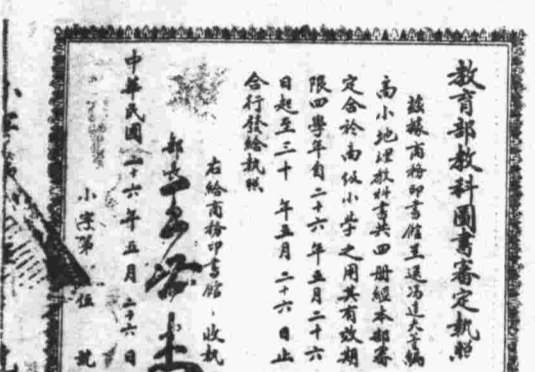 教育部教科圖書審定執照
茲據商務印書館呈送馮達夫等編
高小地理教科書共四冊經本部審
定合於高級小學之用其有效期
限四學年自二十六年五月二十六
日起至三十 年五月二十六日止
合行發給執照
右給商務印書館、收執
部長王
中華民國二十六年五月二十六日
小字第 伍 號